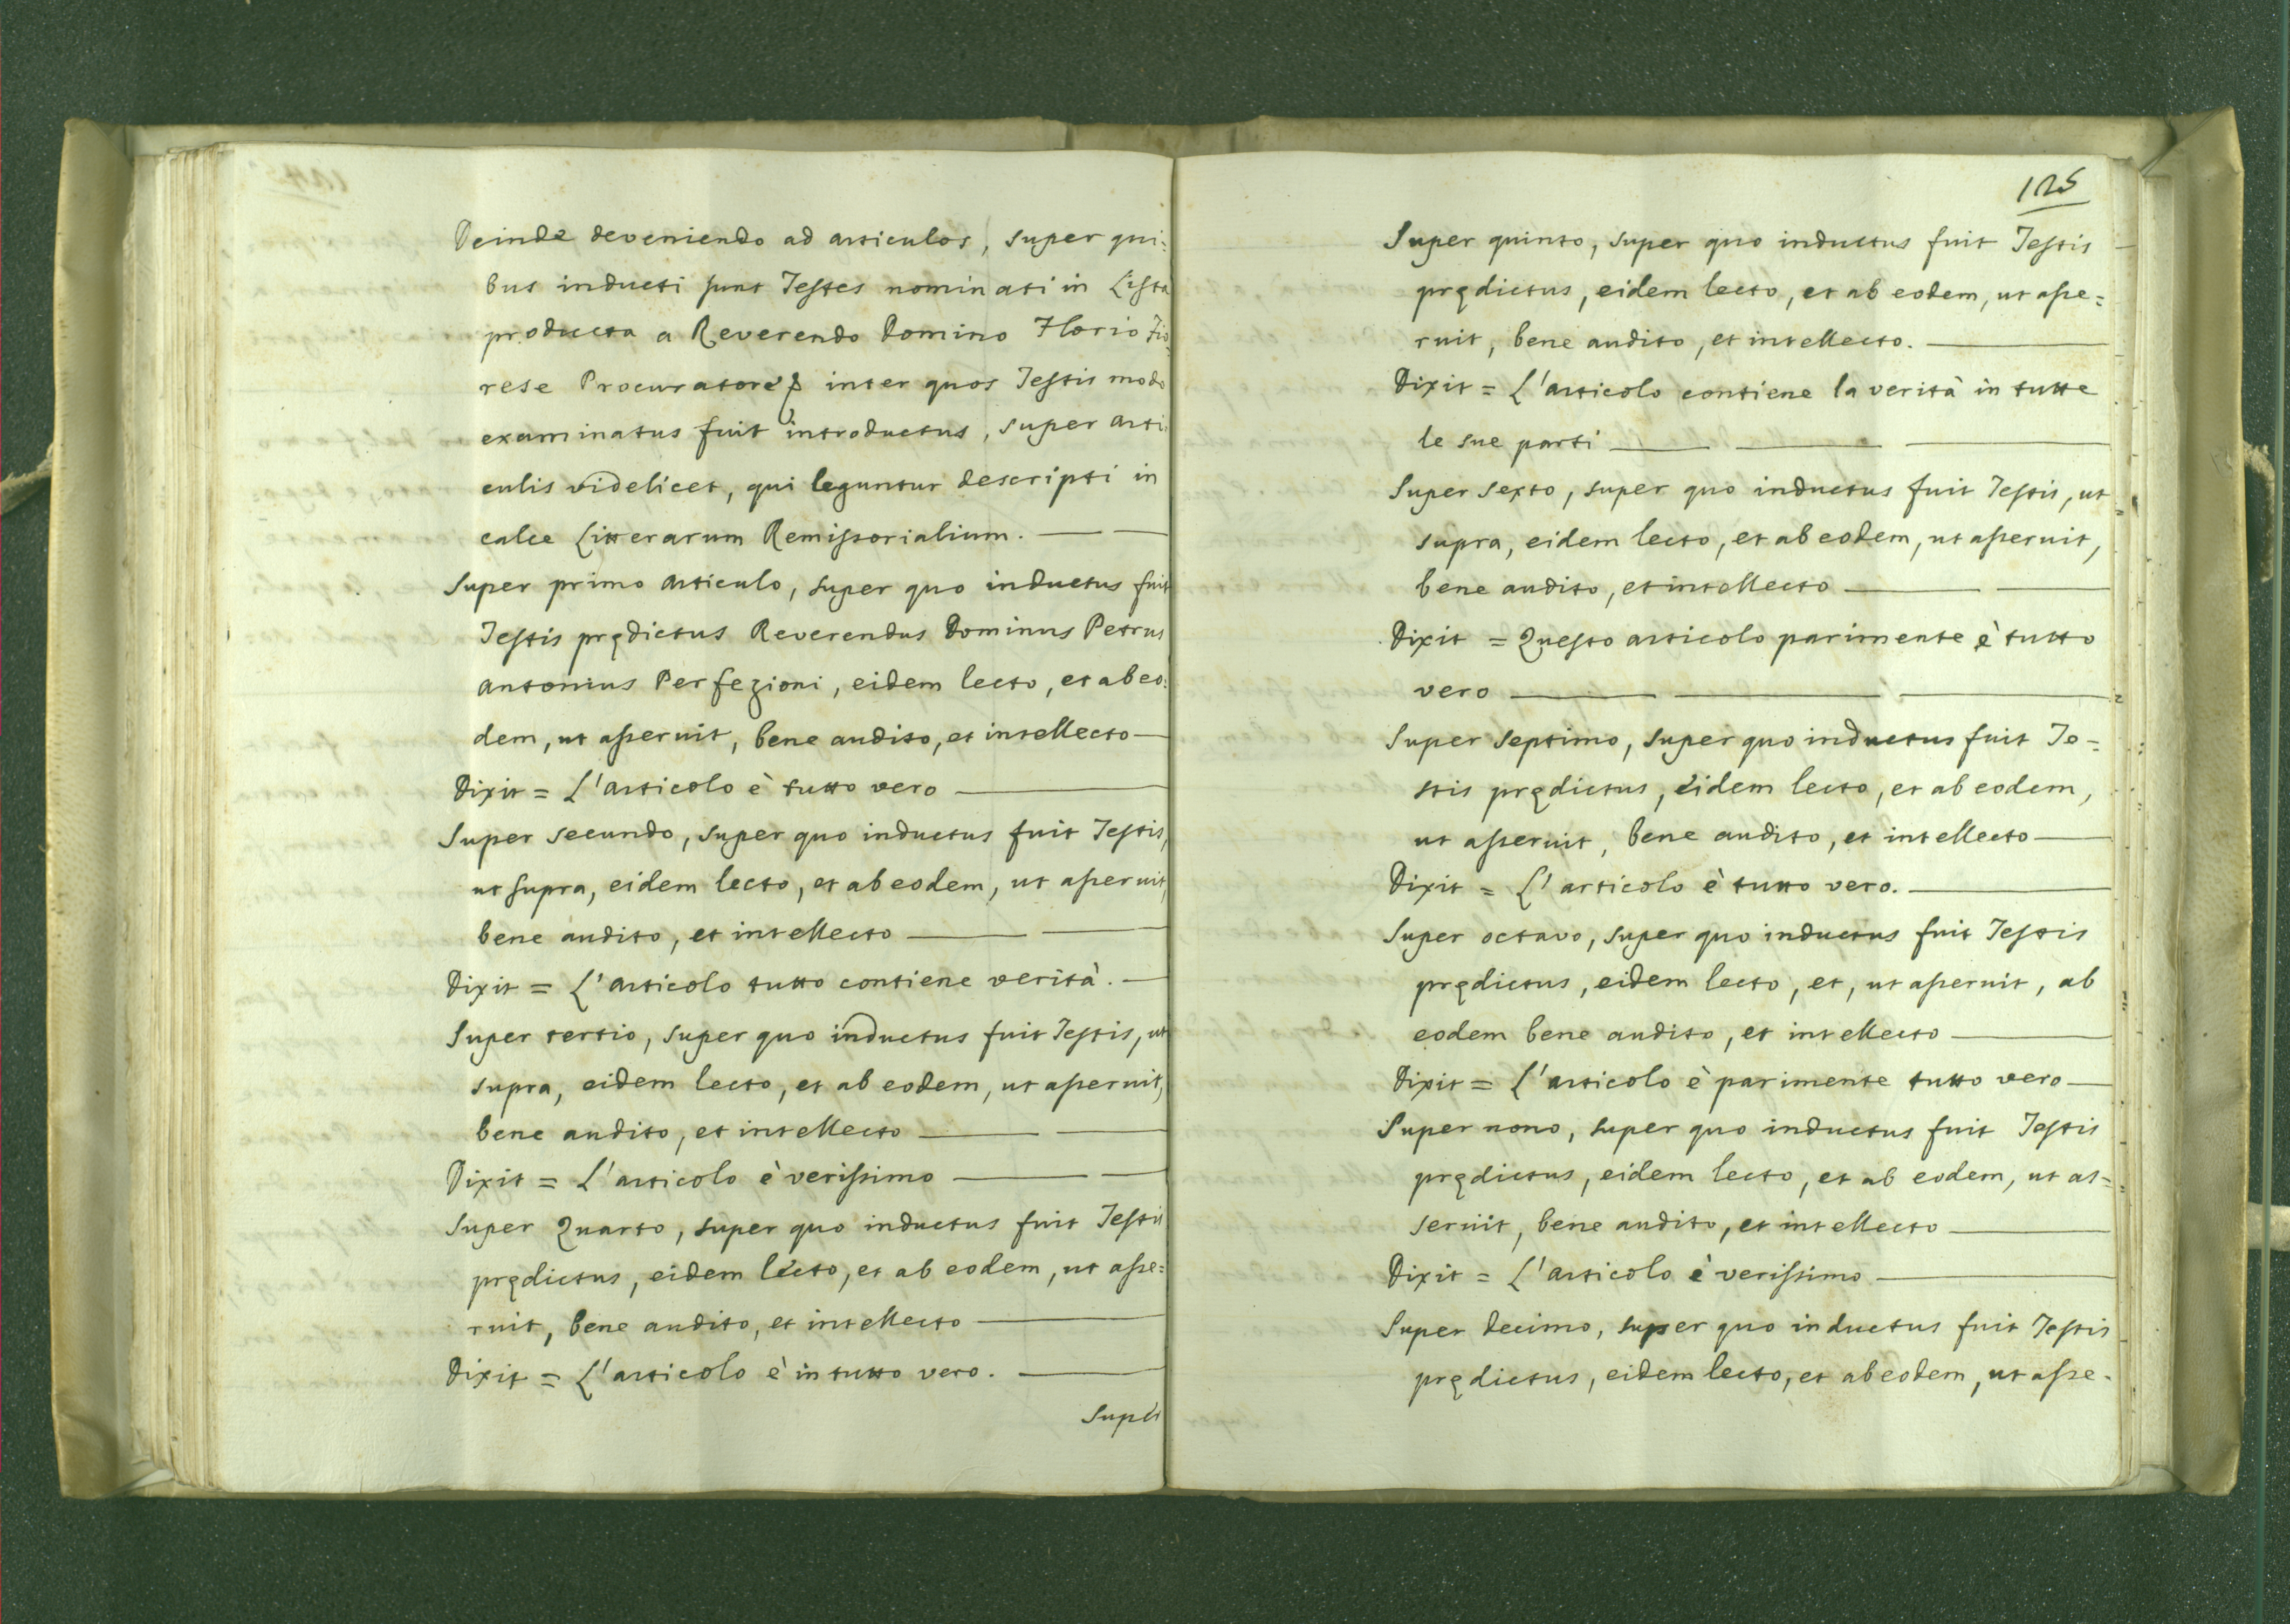 Deinde deveniendo ad articulos, super qui=
bus inducti sunt Testes nominati in Lista
producta a Reverendo Domino Florio Fio=
rese Procuratore, inter quos Testis modo
examinatus fuit introductus, super arti=
culis videlicet, qui leguntur descripti in
calce Litterarum Remissorialium.
Super primo articulo, super quo inductus fuit
Testis prędictus Reverendus Dominus Petrus
Antonius Perfezioni, eidem lecto, et ab eo=
dem, ut asseruit, bene audito, et intellecto
Dixit = L'articolo è tutto vero
Super secundo, super quo inductus fuit Testis,
ut supra, eidem lecto, et ab eodem, ut asseruit,
bene audito, et intellecto
Dixit = L'articolo tutto contiene verità.
Super tertio, super quo inductus fuit Testis, ut
supra, eidem lecto, et ab eodem, ut asseruit,
bene audito, et intellecto
Dixit = L'articolo è verissimo
Super Quarto, super quo inductus fuit Testis
prędictus, eidem lecto, et ab eodem, ut asse=
ruit, bene audito, et intellecto
Dixit = L'articolo è in tutto vero.
Super
125
Super quinto, super quo inductus fuit Testis
prędictus, eidem lecto, et ab eodem, ut asse=
ruit, bene audito, et intellecto.
Dixit = L'articolo contiene la verità in tutte
le sue parti
Super sexto, super quo inductus fuit Testis, ut
supra, eidem lecto, et ab eodem, ut asseruit,
bene audito, et intellecto
Dixit = Questo articolo parimente è tutto
vero
Super septimo, super quo inductus fuit Te=
stis prędictus, eidem lecto, et ab eodem,
ut asseruit, bene audito, et intellecto
Dixit = L'articolo è tutto vero.
Super octavo, super quo inductus fuit Testis
prędictus, eidem lecto, et, ut asseruit, ab
eodem bene audito, et intellecto
Dixit = L'articolo è parimente tutto vero
Super nono, super quo inductus fuit Testis
prędictus, eidem lecto, et ab eodem, ut as=
seruit, bene audito, et intellecto
Dixit = L'articolo è verissimo
Super decimo, super quo inductus fuit Testis
prędictus, eidem lecto, et ab eodem, ut asse-